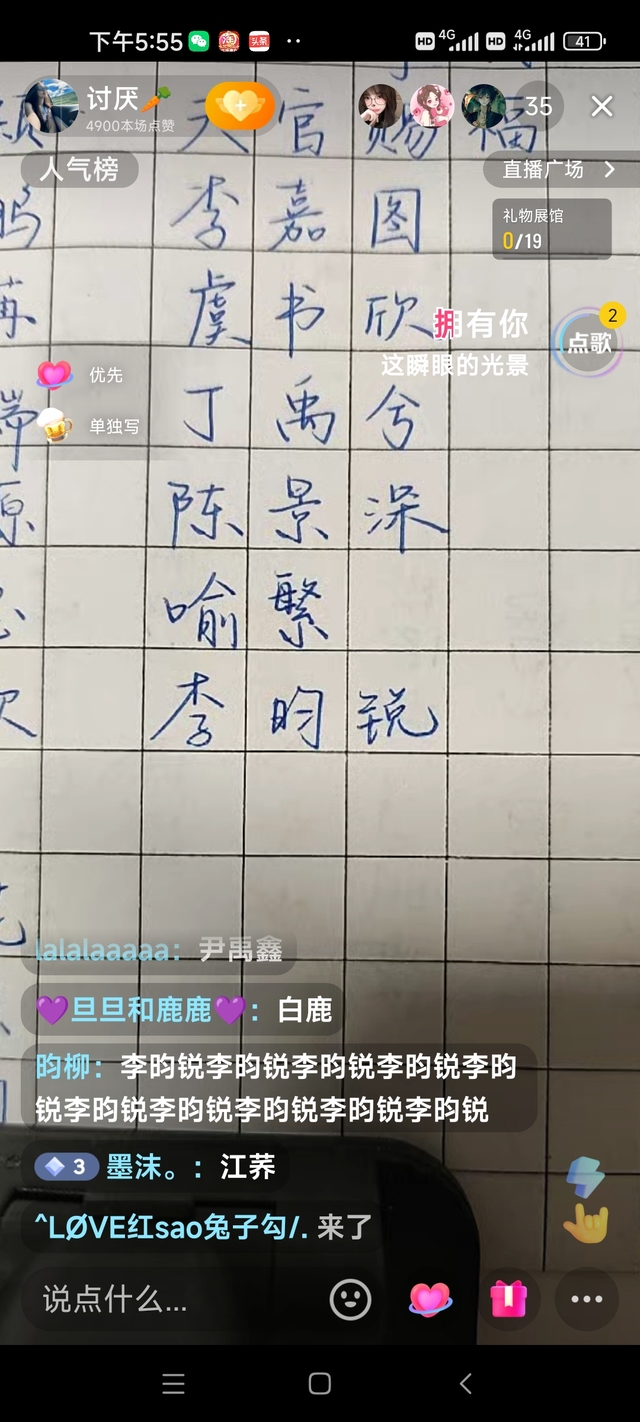 下午5:55
HD 4G HD 4G 41
讨厌🥕
4900本场点赞
35
天官赐福
人气榜
直播广场
礼物展馆
0/19
李嘉图
虞书欣
拥有你
这瞬眼的光景
2
点歌
优先
单独写
丁禹兮
陈景深
喻繁
李昀锐
lalalaaaaa：尹禹鑫
💜旦旦和鹿鹿💜：白鹿
昀柳：李昀锐李昀锐李昀锐李昀锐李昀
锐李昀锐李昀锐李昀锐李昀锐李昀锐
3 墨沫。：江荞
^LØVE红sao兔子勾/. 来了
说点什么...